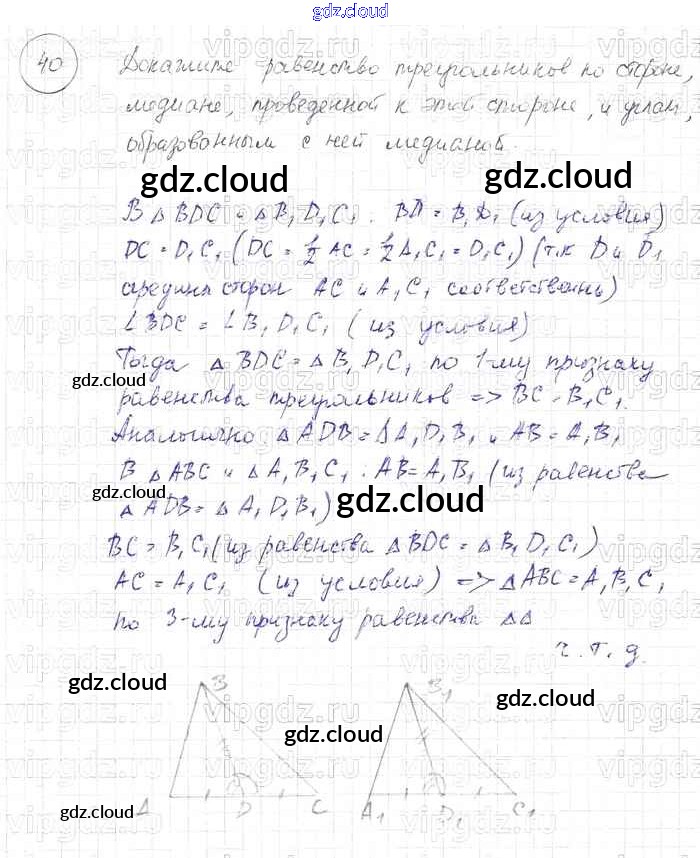 gdz.cloud
40 Докажите равенство треугольников по стороне,
медиане, проведенной к этой стороне, и углам,
образованным с ней медианой.
gdz.cloud gdz.cloud
В △ BDC и △ B₁D₁C₁ : BD = B₁D₁ (из условия)
DC = D₁C₁ (DC = 1/2 AC = 1/2 A₁C₁ = D₁C₁) (т.к D и D₁
середины сторон AC и A₁C₁ соответственно)
∠BDC = ∠B₁D₁C₁ (из условия)
Тогда △ BDC = △ B₁D₁C₁ по 1-му признаку
gdz.cloud
равенства треугольников => BC = B₁C₁.
Аналогично △ ADB = △A₁D₁B₁ и AB = A₁B₁
В △ABC и △ A₁B₁C₁ : AB = A₁B₁ (из равенства
gdz.cloud gdz.cloud
△ ADB = △ A₁D₁B₁)
BC = B₁C₁ (из равенства △ BDC = △B₁D₁C₁)
AC = A₁C₁ (из условия) => △ABC = A₁B₁C₁
по 3-му признаку равенства △△
ч.т.д.
gdz.cloud
B B₁
gdz.cloud
A D C A₁ D₁ C₁
gdz.cloud
vipgdz.ru